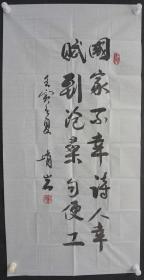 國家不幸詩人幸
賦到滄桑句便工
壬寅夏